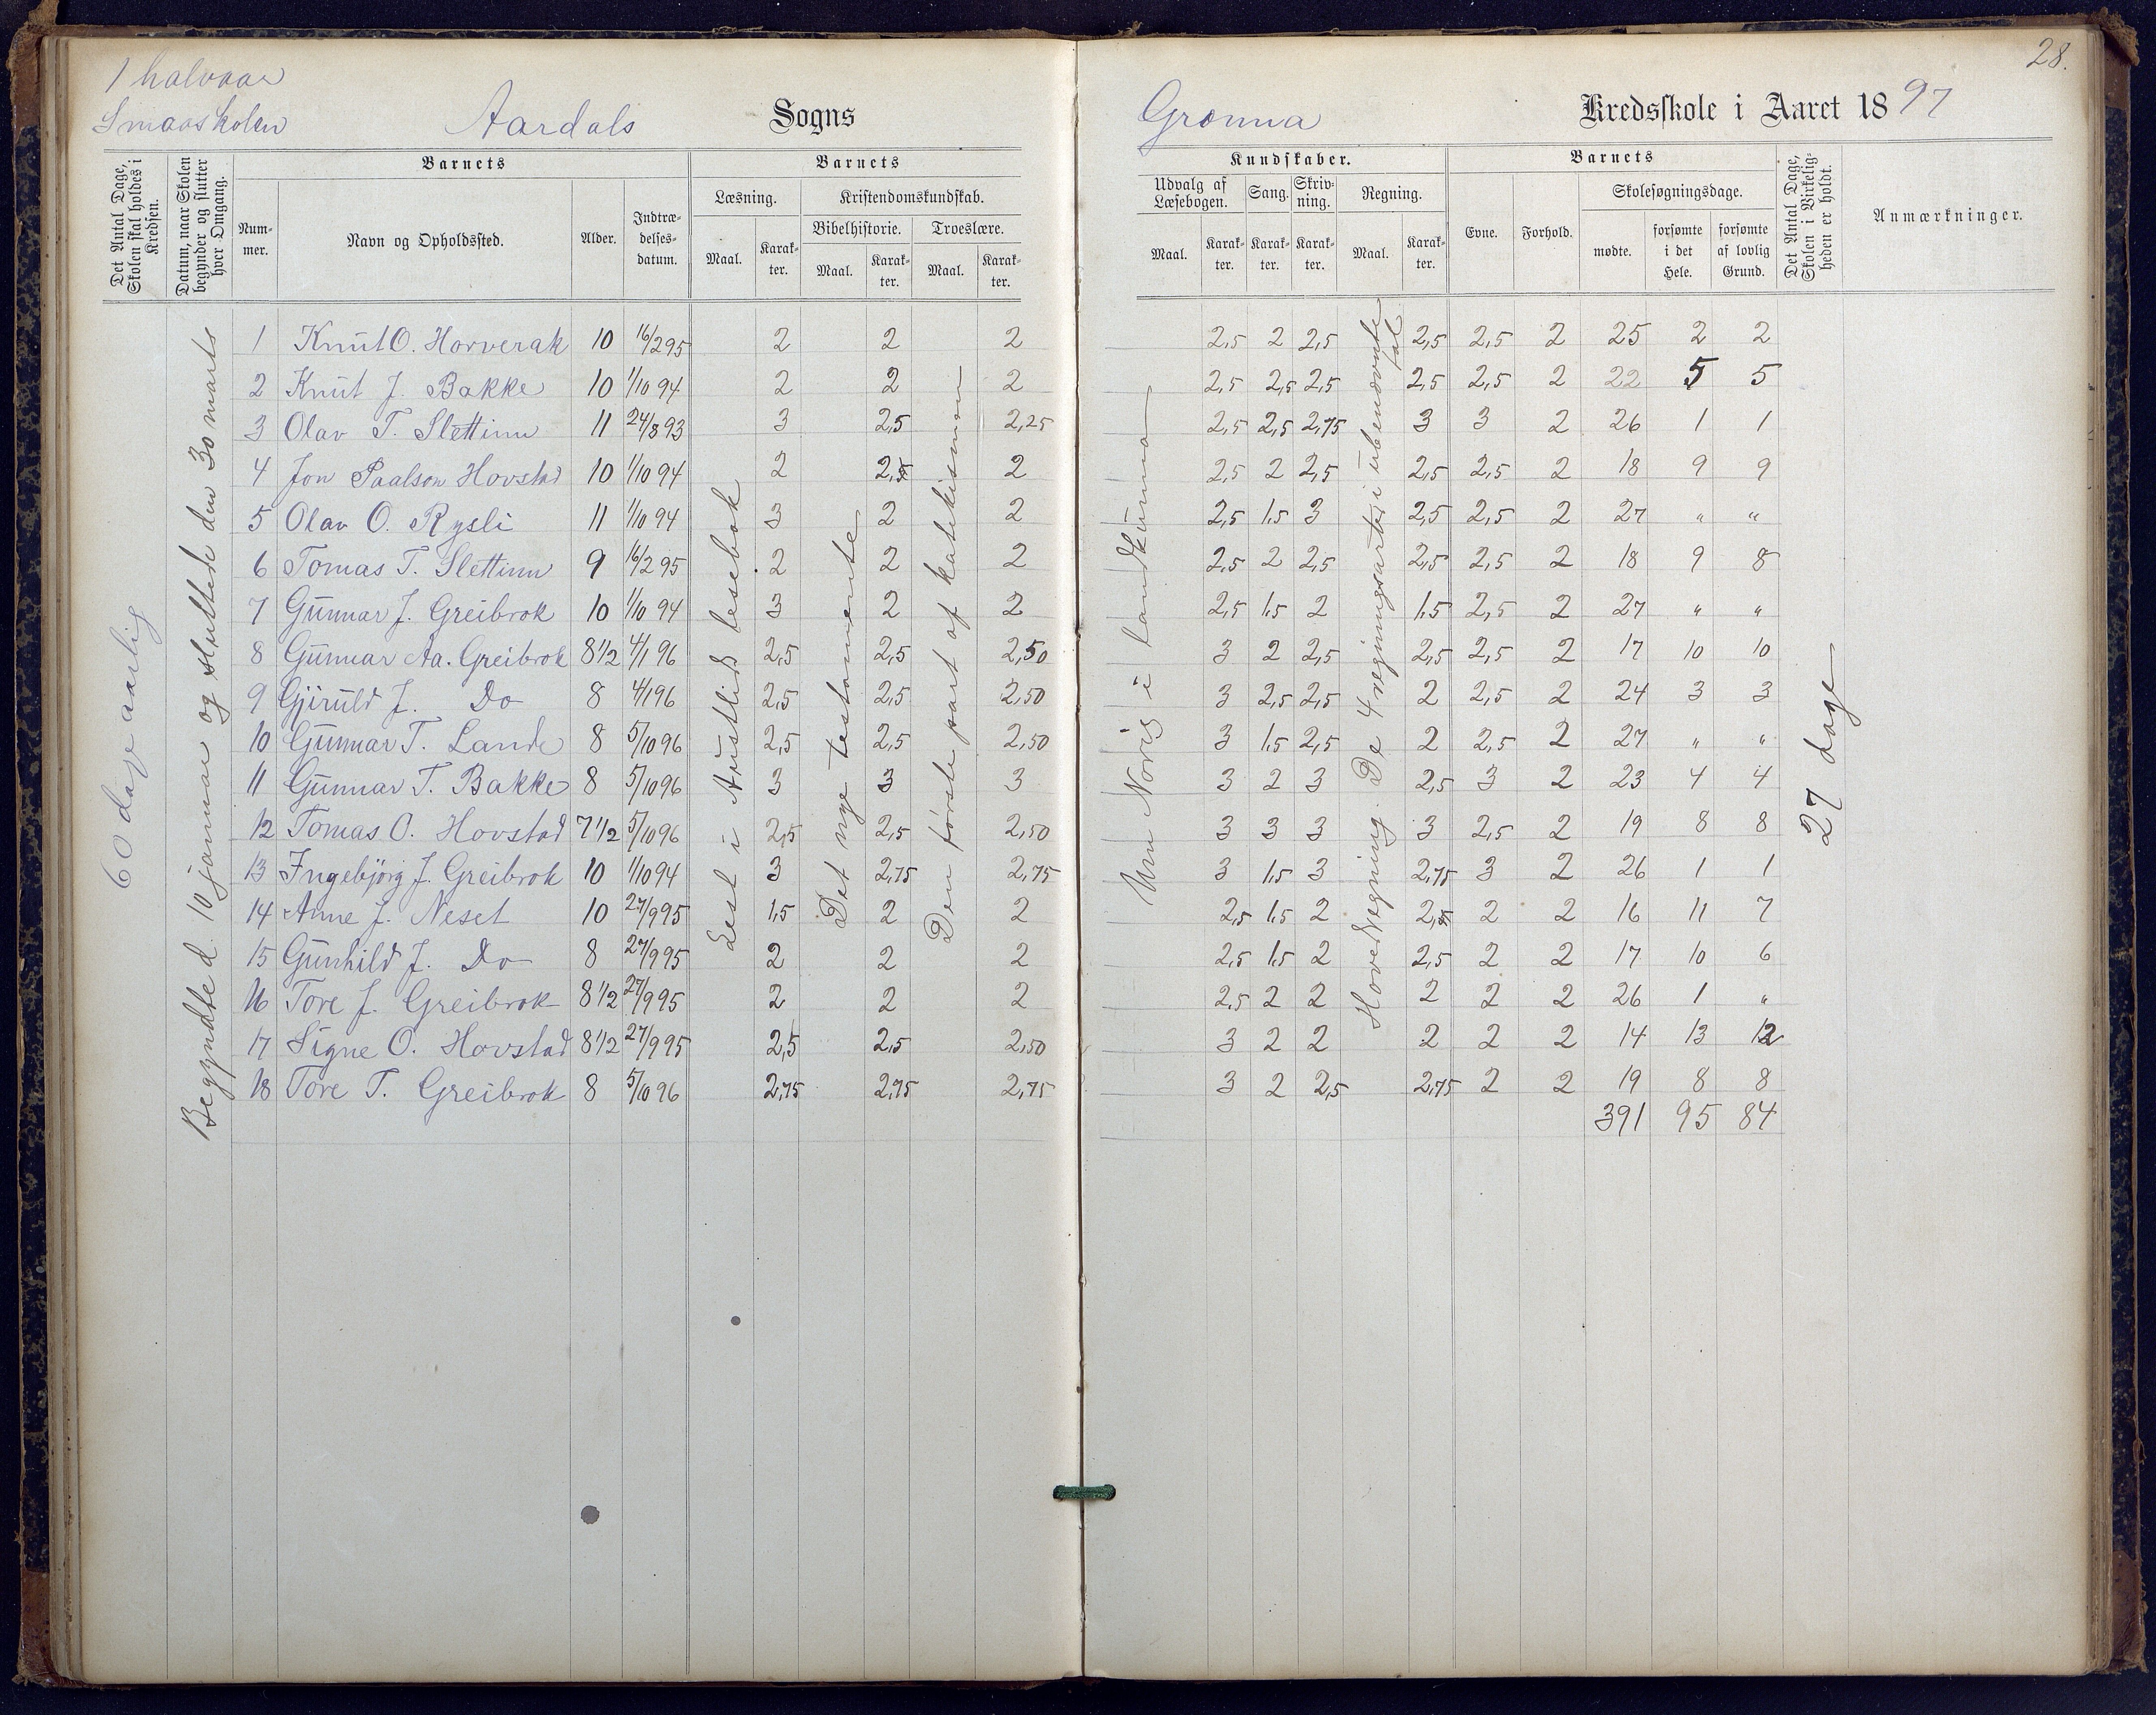 28.
1 halvaar
Smaaskolen
Aardals Sogns
Grønna Kredsskole i Aaret 1897
Det Antal Dage, Skolen skal holdes i Kredsen.
Datum, naar Skolen begynder og slutter hver Omgang.
Barnets
Nummer.
Navn og Opholdssted.
Alder.
Indtrædelsesdatum.
Barnets
Læsning.
Maal.
Karakter.
Kristendomskundskab.
Bibelhistorie.
Maal.
Karakter.
Troeslære.
Maal.
Karakter.
Kundskaber.
Udvalg af Læsebogen.
Maal.
Karakter.
Sang.
Karakter.
Skrivning.
Karakter.
Regning.
Maal.
Karakter.
Barnets
Evne.
Forhold.
Skolesøgningsdage.
mødte.
forsømte i det Hele.
forsømte af lovlig Grund.
Det Antal Dage, Skolen i Virkeligheden er holdt.
Anmærkninger.
60 dage aarlig
Begyndte d. 10 januar og sluttede den 30 marts
Lest i Austlids lesebok
Det nye testamente
Den første part af katekismen
Um Norig i landkunna
Hovedregning. De 4 regningsarter i ubenævnte tal
27 dage
1 Knut O. Horverak 10 16/2 95 2 2 2 2,5 2 2,5 2,5 2,5 2 25 2 2
2 Knut J. Bakke 10 1/10 94 2 2 2 2,5 2,5 2,5 2,5 2,5 2 22 5 5
3 Olav T. Slettinn 11 24/8 93 3 2,5 2,25 2,5 2,5 2,75 3 3 2 26 1 1
4 Jon Paalson Hovstad 10 1/10 94 2 2,5 2 2,5 2 2,5 2,5 2,5 2 18 9 9
5 Olav O. Rysli 11 1/10 94 3 2 2 2,5 1,5 3 2,5 2,5 2 27 " "
6 Tomas T. Slettinn 9 16/2 95 2 2 2 2,5 2 2,5 2,5 2,5 2 18 9 8
7 Gunnar J. Greibrok 10 1/10 94 3 2 2 2,5 1,5 2 1,5 2,5 2 27 " "
8 Gunnar Aa. Greibrok 8 1/2 4/1 96 2,5 2,5 2,50 3 2 2,5 2,5 2,5 2 17 10 10
9 Gjiruld J. Do 8 4/1 96 2,5 2,5 2,50 3 2,5 2,5 2 2,5 2 24 3 3
10 Gunnar T. Lande 8 5/10 96 2,5 2,5 2,50 3 1,5 2,5 2 2,5 2 27 " "
11 Gunnar T. Bakke 8 5/10 96 3 3 3 3 2 3 2,5 3 2 23 4 4
12 Tomas O. Hovstad 7 1/2 5/10 96 2,5 2,5 2,50 3 3 3 3 2,5 2 19 8 8
13 Ingebjørg J. Greibrok 10 1/10 94 3 2,75 2,75 3 1,5 3 2,75 3 2 26 1 1
14 Anne J. Neset 10 27/9 95 1,5 2 2 2,5 1,5 2 2,5 2 2 16 11 7
15 Gunhild J. Do 8 27/9 95 2 2 2 2,5 1,5 2 2,5 2 2 17 10 6
16 Tore J. Greibrok 8 1/2 27/9 95 2 2 2 2,5 2 2 2 2 2 26 1 "
17 Signe O. Hovstad 8 1/2 27/9 95 2,5 2,5 2,50 3 2 2 2 2 2 14 13 12
18 Tore T. Greibrok 8 5/10 96 2,75 2,75 2,75 3 2 2,5 2,75 2 2 19 8 8
391 95 84